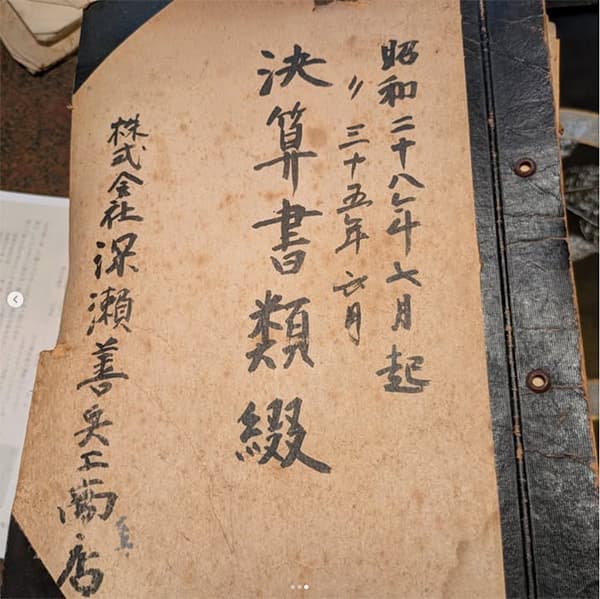 昭和二十八年七月起
〃 三十五年六月
決算書類綴
株式会社深瀬善兵工商店